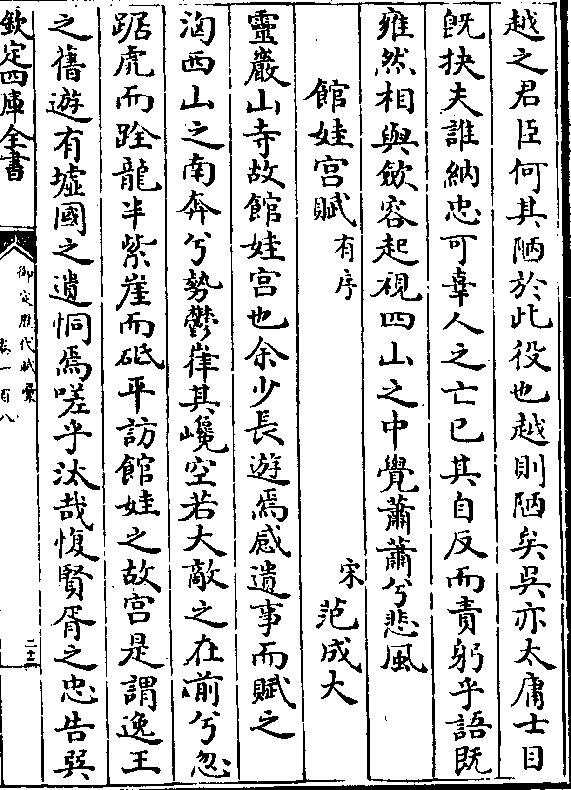 越之君臣何其陋於此役也越則陋矣吳亦太庸士目
旣抉夫誰納忠可幸人之亡已其自反而責躬乎語旣
雍然相與斂容起視四山之中覺蕭蕭兮悲風
館娃宮賦有序
宋范成大
靈巖山寺故館娃宮也余少長遊焉感遺事而賦之
洶西山之南奔兮勢鬱嵂其巉空若大敵之在前兮忽
踞虎而跧龍半紫崖而砥平訪館娃之故宮是謂逸王
之舊遊有墟國之遺恫焉嗟乎汰哉愎賢胥之忠告與
欽定四庫全書
御定歷代賦彙
卷一百八
二十三